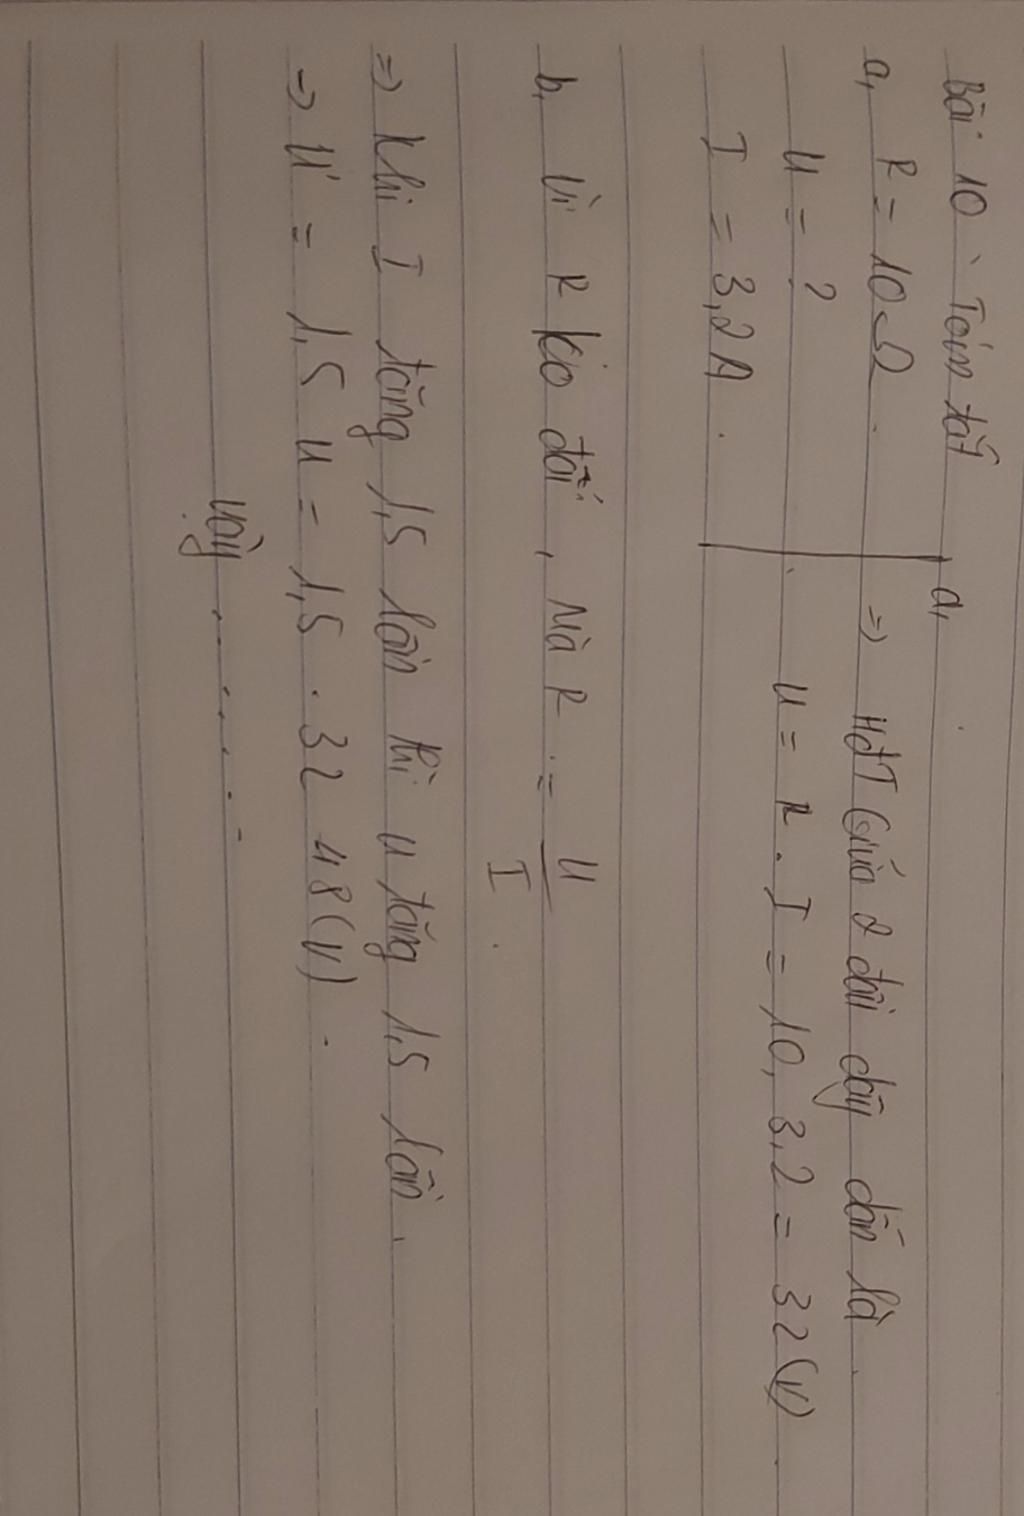 Bài 10 : Tóm tắt
a,
a, R = 10Ω.
=> HĐT Giữa 2 đầu dây dẫn là
U = ?
U = R . I = 10, 3,2 = 32 (V)
I = 3,2A.
b, Vì R ko đổi, Mà R = U
I
=> Khi I tăng 1,5 lần thì U tăng 1,5 lần.
=> U' = 1,5 U = 1,5 . 32 48 (V).
Vậy .......